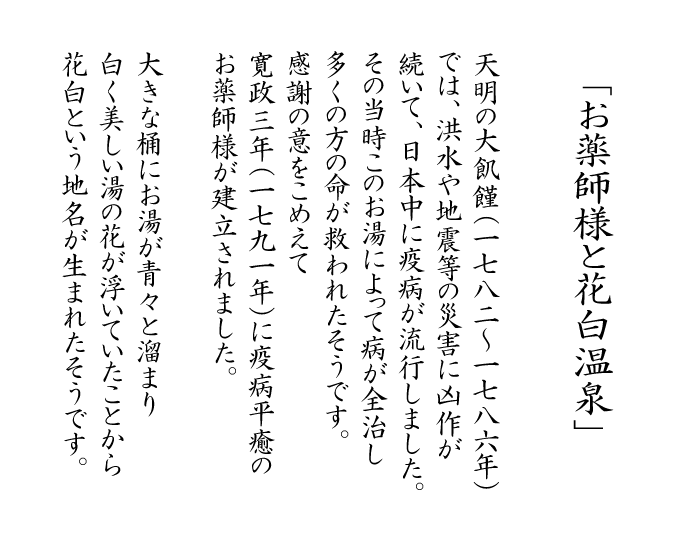 「お薬師様と花白温泉」
天明の大飢饉（一七八二～一七八六年）
では、洪水や地震等の災害に凶作が
続いて、日本中に疫病が流行しました。
その当時このお湯によって病が全治し
多くの方の命が救われたそうです。
感謝の意をこめえて
寛政三年（一七九一年）に疫病平癒の
お薬師様が建立されました。
大きな桶にお湯が青々と溜まり
白く美しい湯の花が浮いていたことから
花白という地名が生まれたそうです。